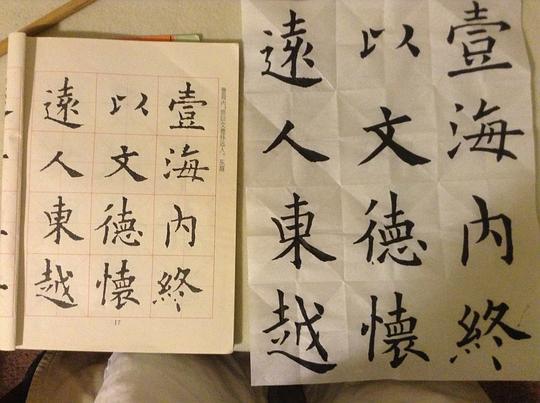 壹海内終
以文德懷
遠人東越
17
壹海内終
以文德懷
遠人東越